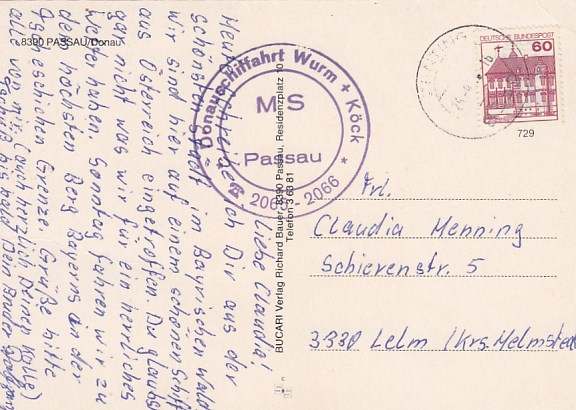 8390 PASSAU/Donau
Liebe Claudia!
Heute schreibe ich Dir aus der
schönsten Stadt im Bayrischen Wald
wir sind hier auf einem schönen Schiff
aus Österreich eingetroffen. Du glaubst
gar nicht was wir für ein herrliches
Wetter haben. Sonntag fahren wir zu
dem höchsten Berg Bayerns an der
Grenze. Grüße bitte
alle von mir. (auch herzlich Deinen
bis bald Dein Bruder
Donauschiffahrt Wurm + Köck
MS
Passau
2065-2066
BUCARI Verlag Richard Bauer, 8390 Passau, Residenzplatz 10
Telefon 3 63 81
DEUTSCHE BUNDESPOST
60
729
Frl.
Claudia Henning
Schierenstr. 5
3330 Lelm (Krs. Helmstedt